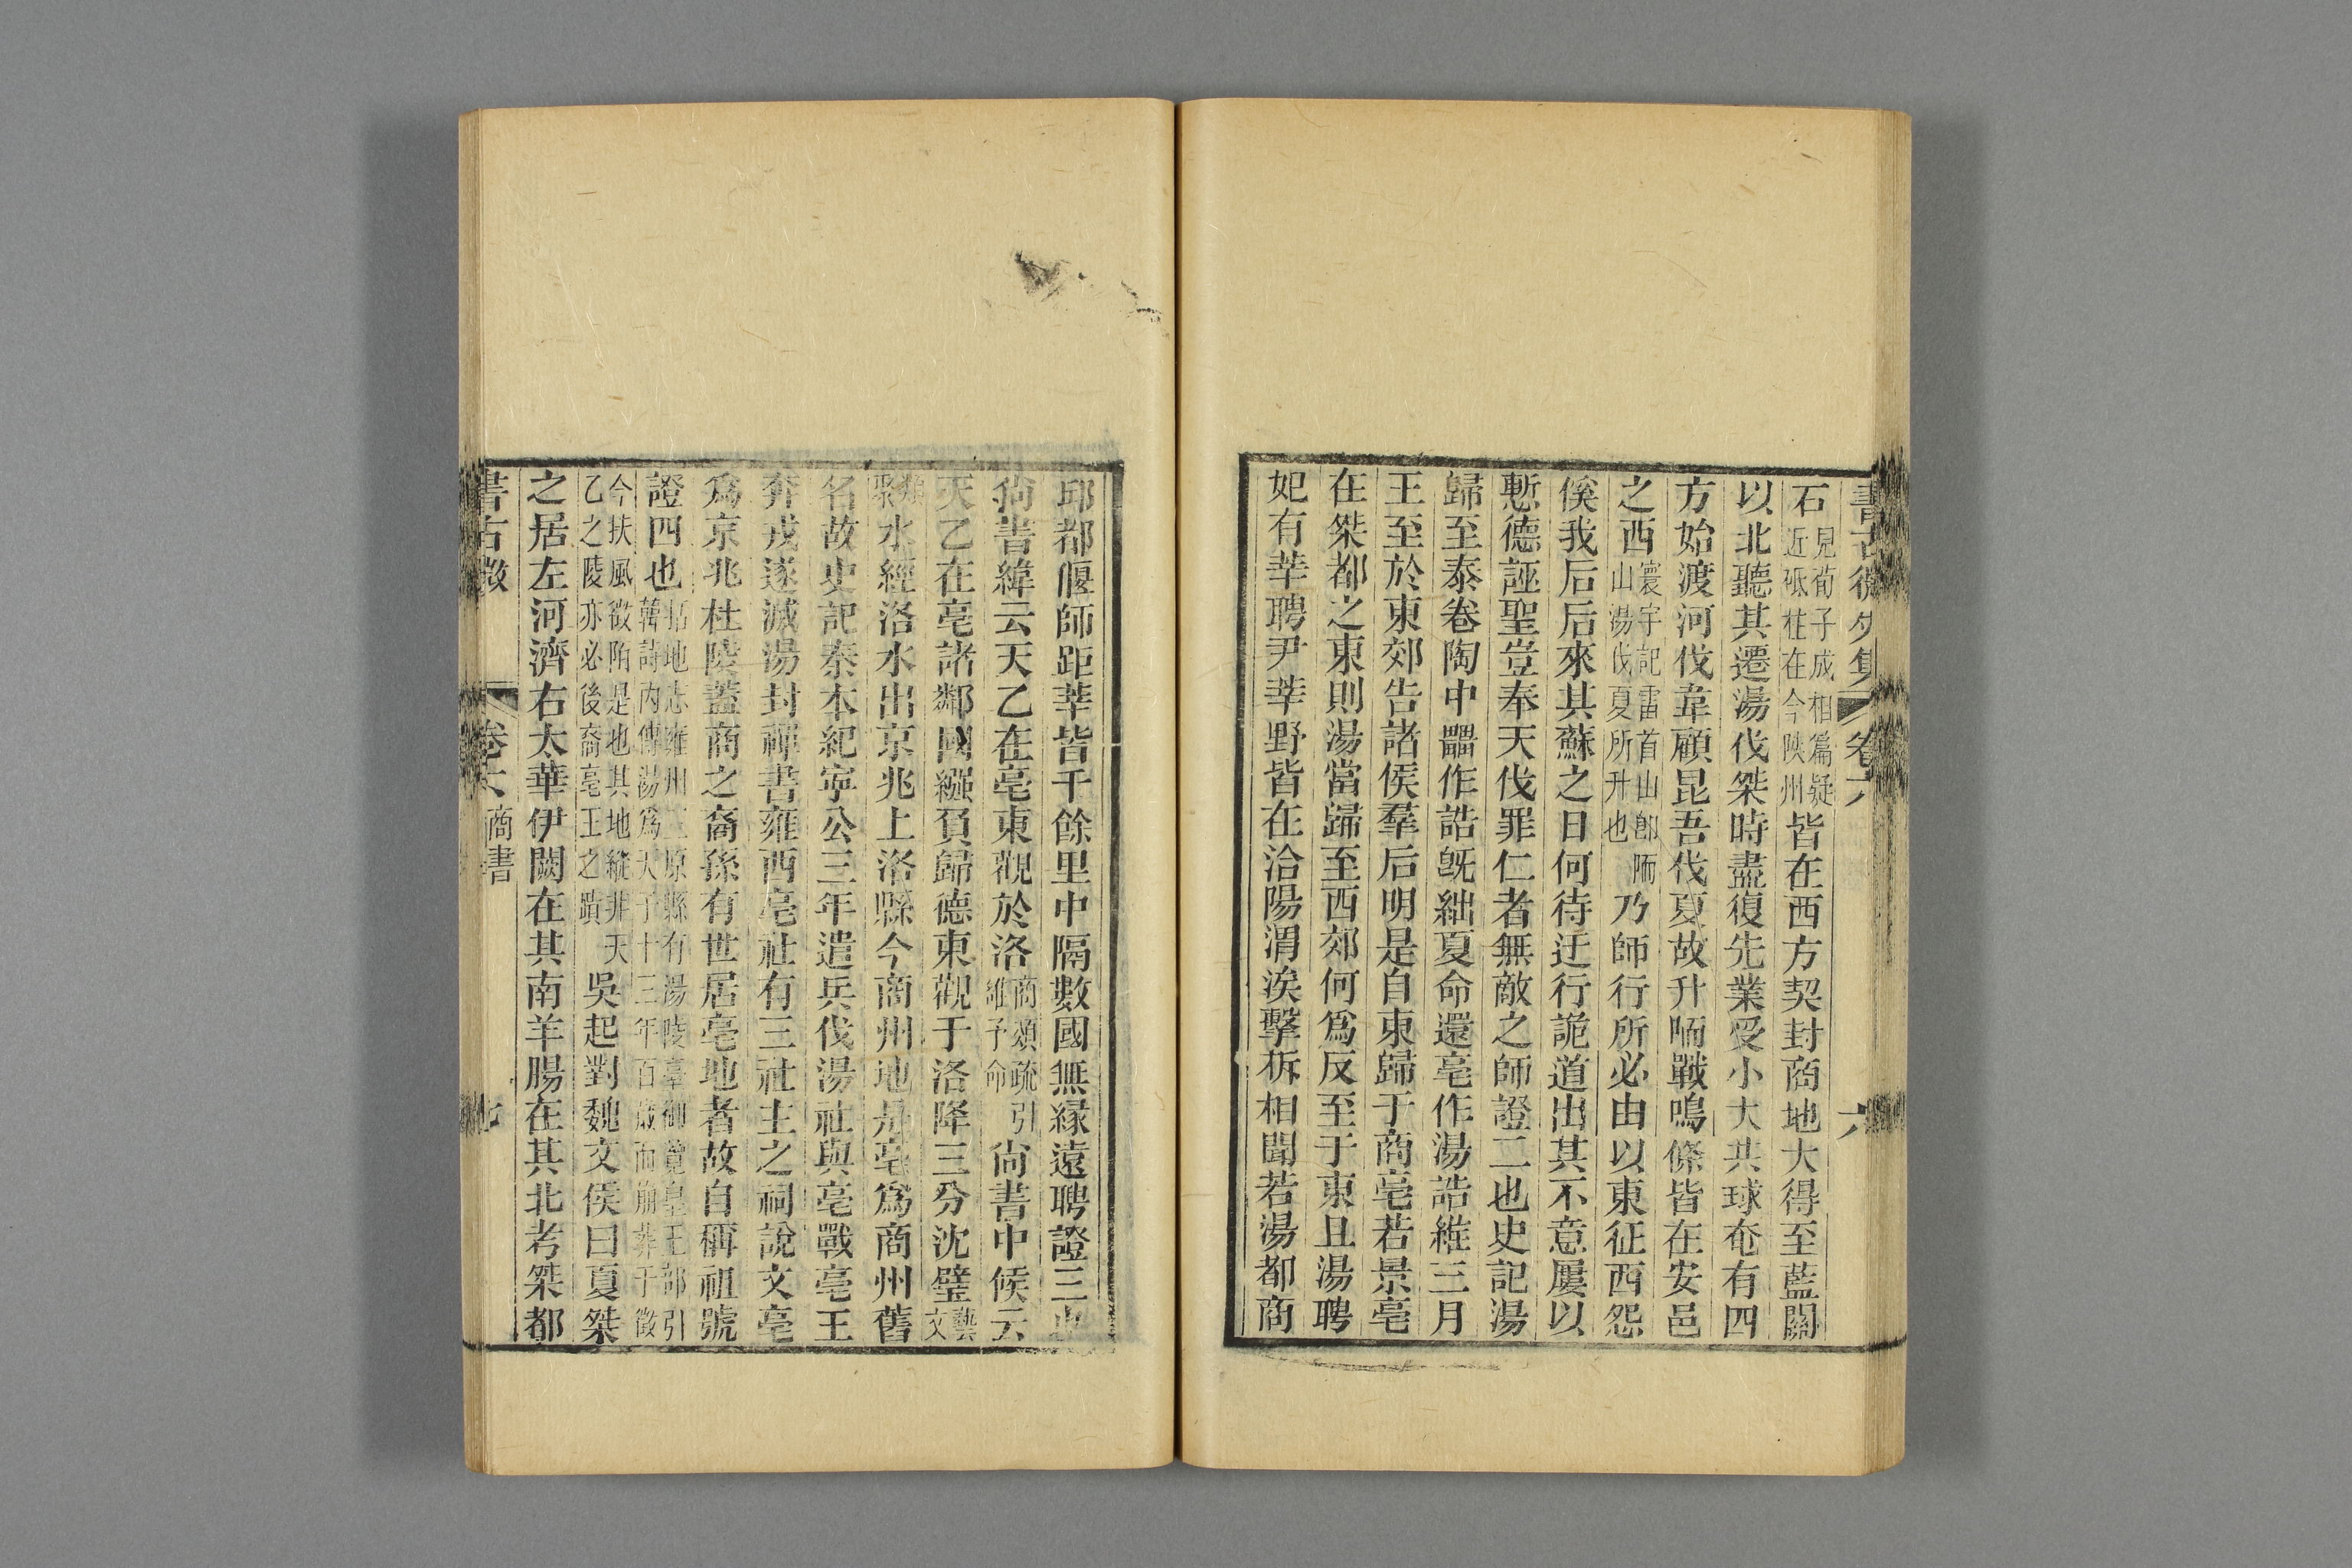 石見荀子成相篇疑近砥柱在今陝州皆在西方契封商地大得至藍關
以北聽其遷湯伐桀時盡復先業受小大共球奄有四
方始渡河伐韋顧昆吾伐夏故升陑戰鳴條皆在安邑
之西寰宇記雷首山卽陑山湯伐夏所升也乃師行所必由以東征西怨
徯我后后來其蘇之日何待迂行詭道出其不意屢以
慙德誣聖豈奉天伐罪仁者無敵之師證二也史記湯
歸至泰卷陶中𤳳作誥旣絀夏命還亳作湯誥維三月
王至於東郊告諸侯羣后明是自東歸于商亳若景亳
在桀都之東則湯當歸至西郊何爲反至于東且湯聘
妃有莘聘尹莘野皆在洽陽渭涘擊柝相聞若湯都商
邱都偃師距莘皆千餘里中隔數國無緣遠聘證三也
尙書緯云天乙在亳東觀於洛商頌疏引維予命尙書中候云
天乙在亳諸鄰國繈負歸德東觀于洛降三分沈璧藝文
類聚水經洛水出京兆上洛縣今商州地是亳爲商州舊
名故史記秦本紀寧公三年遣兵伐湯社與亳戰亳王
奔戎遂滅湯封禪書雍西亳社有三社主之祠說文亳
爲京兆杜陵蓋商之裔孫有世居亳地者故自稱祖號
證四也括地志雍州三原縣有湯陵臺御覽皇王部引韓詩內傳湯爲天子十三年百歲而崩葬于徵
今扶風徵陌是地其地縱非天乙之陵亦必後裔亳王之蹟吳起對魏文侯曰夏桀
之居左河濟右太華伊闕在其南羊腸在其北考桀都
書古微 卷六 商書 七